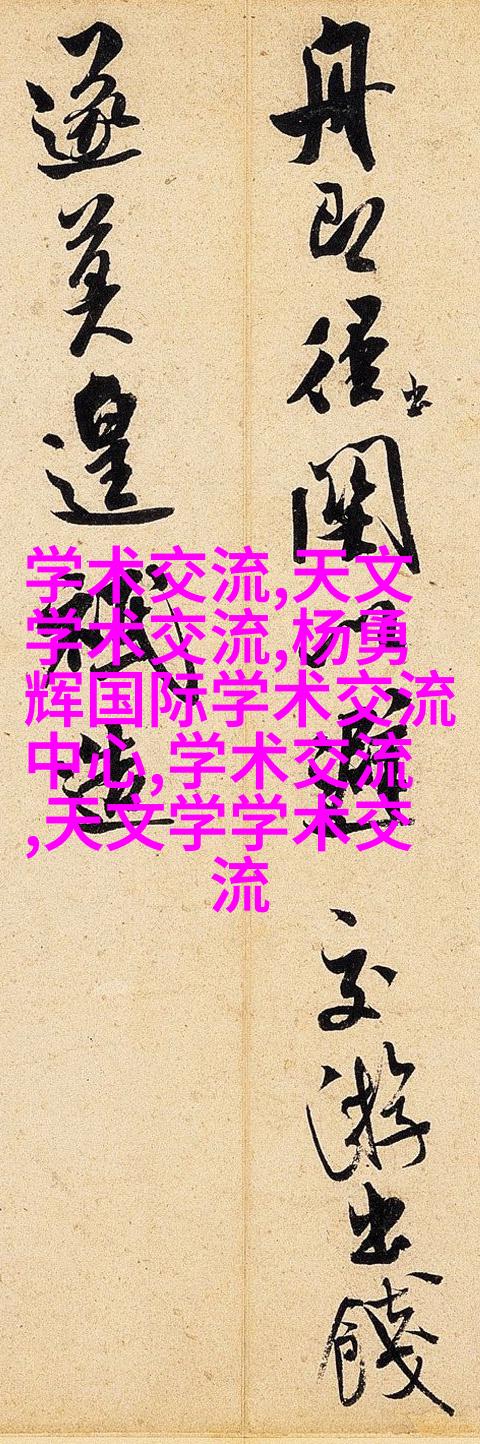 舟即徑出 交游出餞
遂莫遑 造
学术交流,天文
学术交流,杨勇
辉国际学术交流
中心,学术交流
,天文学学术交
流